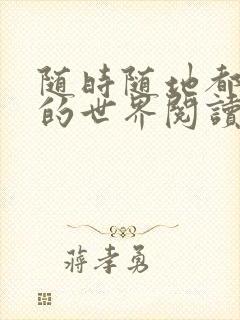 随時随地都
的世界閱讀
蔣孝勇